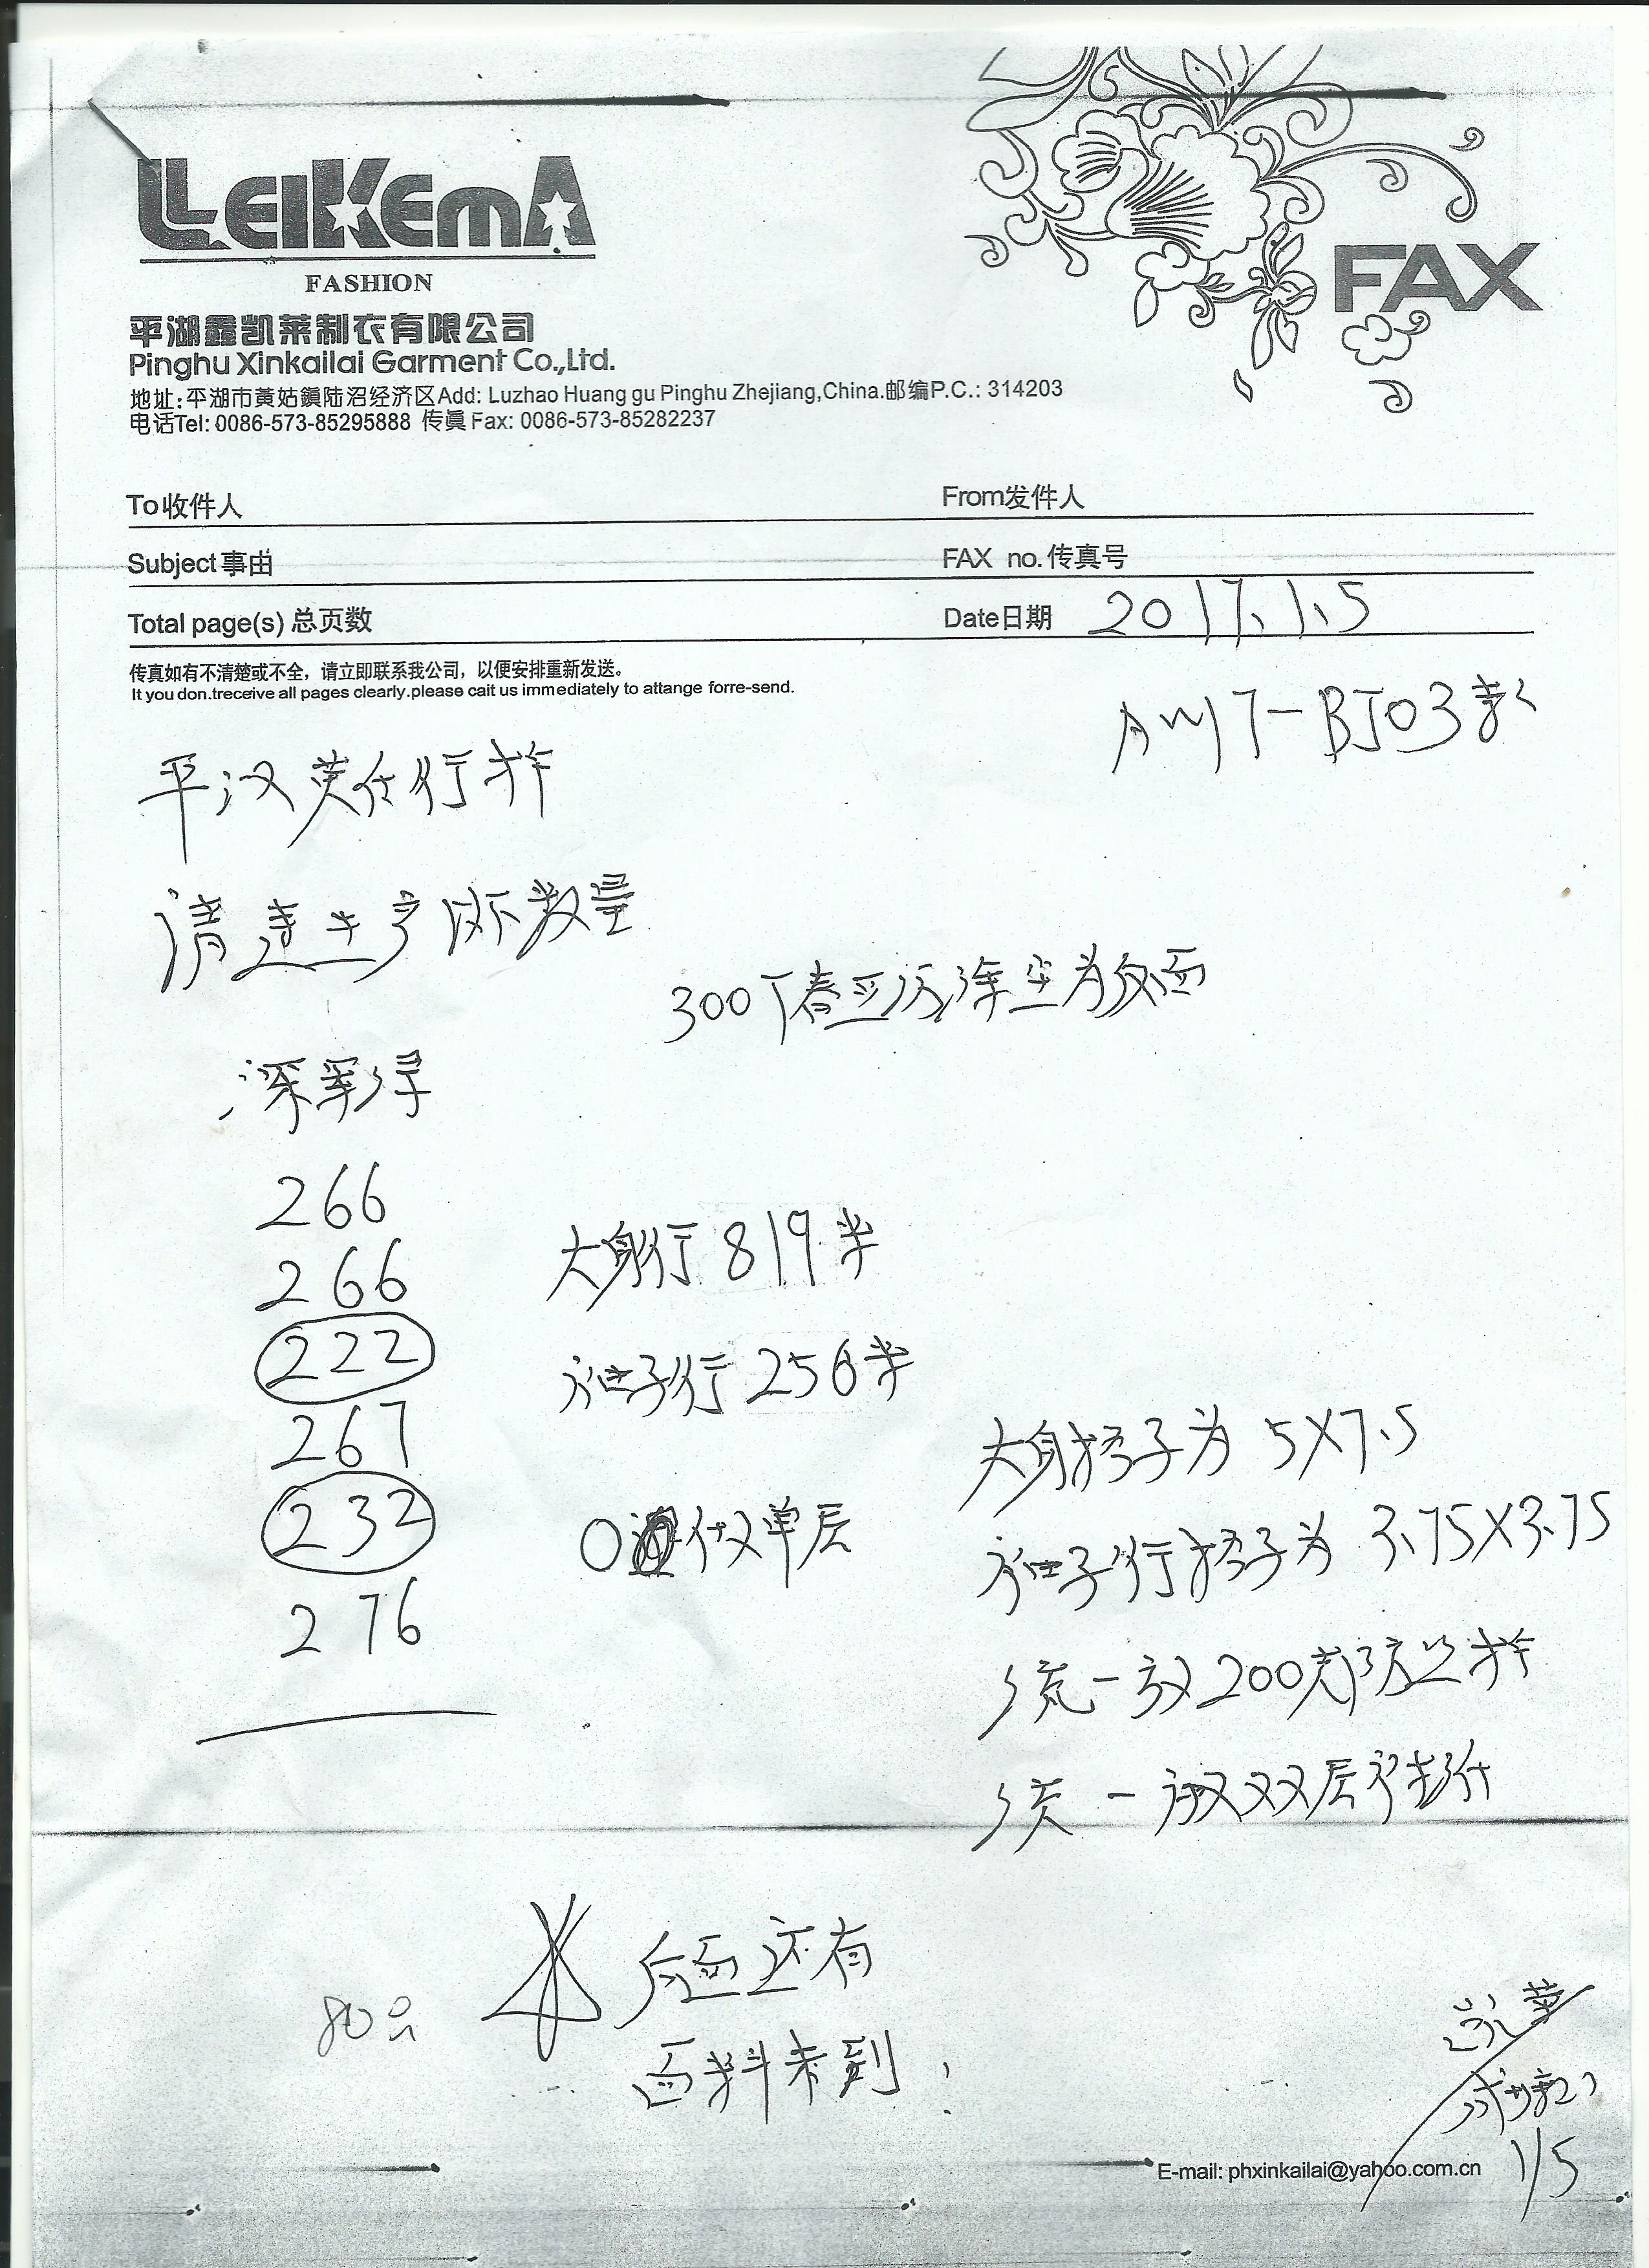 LEIKEMA
FASHION
FAX
平湖鑫凯莱制衣有限公司
Pinghu Xinkailai Garment Co.,Ltd.
地址:平湖市黃姑鎭陆沼经济区Add: Luzhao Huang gu Pinghu Zhejiang,China.邮编P.C.: 314203
电话Tel: 0086-573-85295888 传眞 Fax: 0086-573-85282237
To收件人 From发件人
Subject事由 FAX no.传真号
Total page(s) 总页数 Date日期 2017.1.5
传真如有不清楚或不全，请立即联系我公司，以便安排重新发送。
It you don.treceive all pages clearly.please cait us immediately to attange forre-send.
AW17-BJ03款
平汉英住行样
请速生产以下数量
300T春亚纺涂
为反面
深彩绿
266
266
大身行 819米
222
袖子行 256米
267
大身格子为 5X7.5
232
做单层
袖子行格子为 3.75X3.75
276
统一
200克
统一
双层
后面还有
80只
面料未到
1/5
E-mail: phxinkailai@yahoo.com.cn